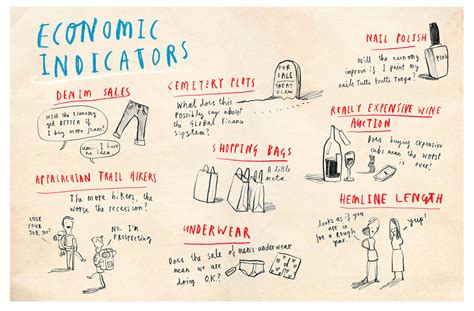 ECONOMIC
INDICATORS
DENIM SALES
Will the economy
get BETTER if
I buy more jeans?
um.. I have
no idea.
CEMETERY PLOTS
What does this
possibly say about
the Global Financial
System?
FOR
SALE
GREAT
VIEW
NAIL POLISH
Will the economy
improve if I paint my
nails Tutti Frutti Tonga?
PINK
REALLY EXPENSIVE WINE
AUCTION
Does buying expensive
cabs mean the worst
is over?
SHOPPING BAGS
A little
meta.
APPALACHIAN TRAIL HIKERS
The more hikers, the
worse the recession?
LOSE
YOUR
JOB, TOO?
NO. I'M
PROSPECTING
UNDERWEAR
Does the sale of men's underwear
mean we are
doing O.K.?
HEMLINE LENGTH
looks as if you
are in
for a rough
year.
yup!